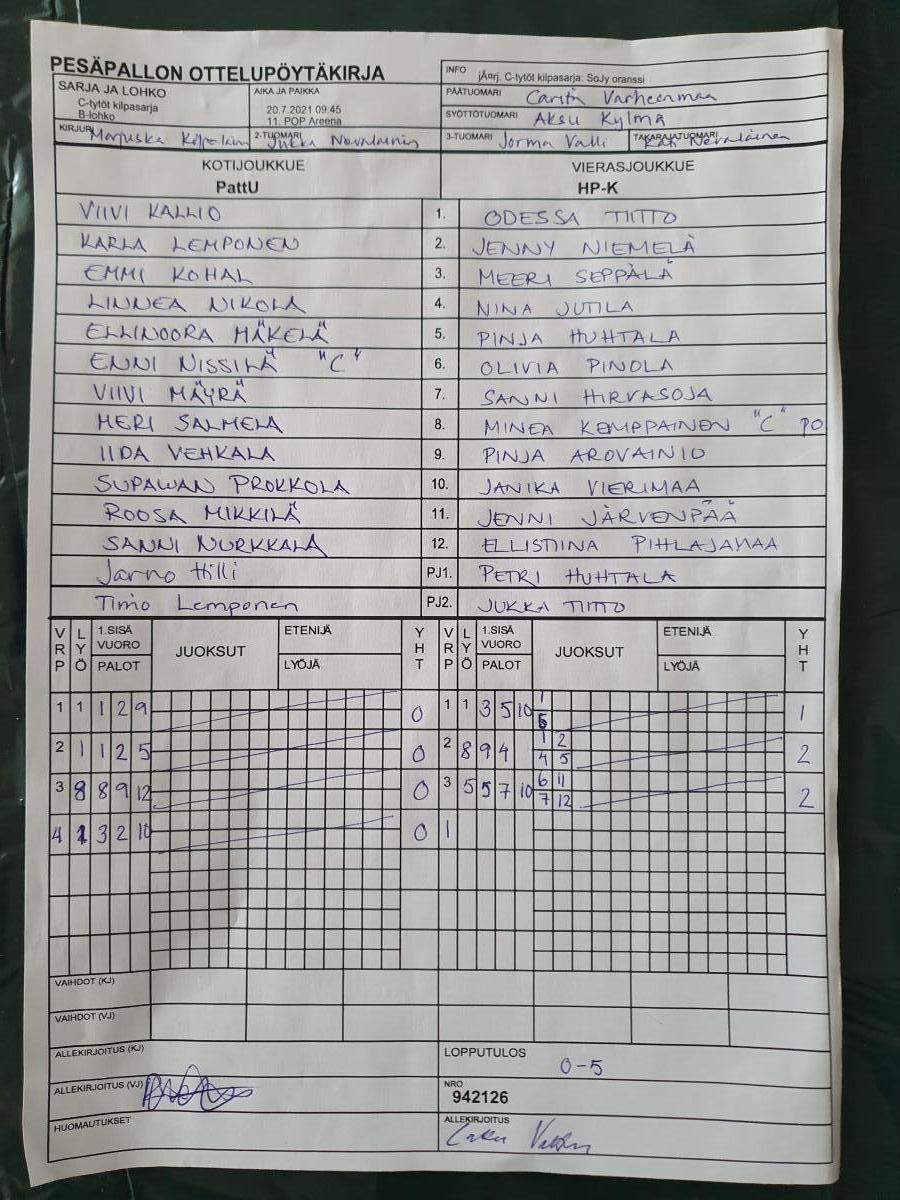 PESÄPALLON OTTELUPÖYTÄKIRJA
INFO jÄnrj. C-tytöt kilpasarja: SoJy oranssi
SARJA JA LOHKO
C-tytöt kilpasarja
B-lohko
AIKA JA PAIKKA
20.7.2021 09:45
11. POP Areena
PÄÄTUOMARI Carita Varheenmaa
SYÖTTÖTUOMARI Aksu Kylmä
KIRJURI Marjuska
2-TUOMARI Jukka Nevalainen
3-TUOMARI Jorma Valli
TAKARAJATUOMARI Nevalainen
KOTIJOUKKUE VIERASJOUKKUE
PattU HP-K
VIIVI KALLIO 1. ODESSA TIITTO
KARLA LEMPONEN 2. JENNY NIEMELÄ
EMMI KOHAL 3. MEERI SEPPÄLÄ
LINNEA NIKOLA 4. NINA JUTILA
ELLINOORA MÄKELÄ 5. PINJA HUHTALA
ENNI NISSILÄ "C" 6. OLIVIA PINOLA
VIIVI MÄYRÄ 7. SANNI HIRVASOJA
MERI SALMELA 8. MINEA KEMPPAINEN "C" PO
IIDA VEHKALA 9. PINJA AROVAINIO
SUPAWAN PROKKOLA 10. JANIKA VIERIMAA
ROOSA MIKKILÄ 11. JENNI JÄRVENPÄÄ
SANNI NURKKALA 12. ELLISTIINA PIHLAJAMAA
Jarno Hilli PJ1. PETRI HUHTALA
Timo Lemponen PJ2. JUKKA TIITTO
VRP LYÖ 1.SISÄ VUORO PALOT JUOKSUT ETENIJÄ LYÖJÄ YHT VRP LYÖ 1.SISÄ VUORO PALOT JUOKSUT ETENIJÄ LYÖJÄ YHT
1 1 1 2 9 0 1 1 3 5 10 1 5 1
2 1 1 2 5 0 2 8 9 4 1 2 4 5 2
3 8 8 9 12 0 3 5 5 7 10 6 11 7 12 2
4 1 3 2 10 0 1
VAIHDOT (KJ)
VAIHDOT (VJ)
ALLEKIRJOITUS (KJ)
LOPPUTULOS 0-5
ALLEKIRJOITUS (VJ)
NRO
942126
HUOMAUTUKSET
ALLEKIRJOITUS